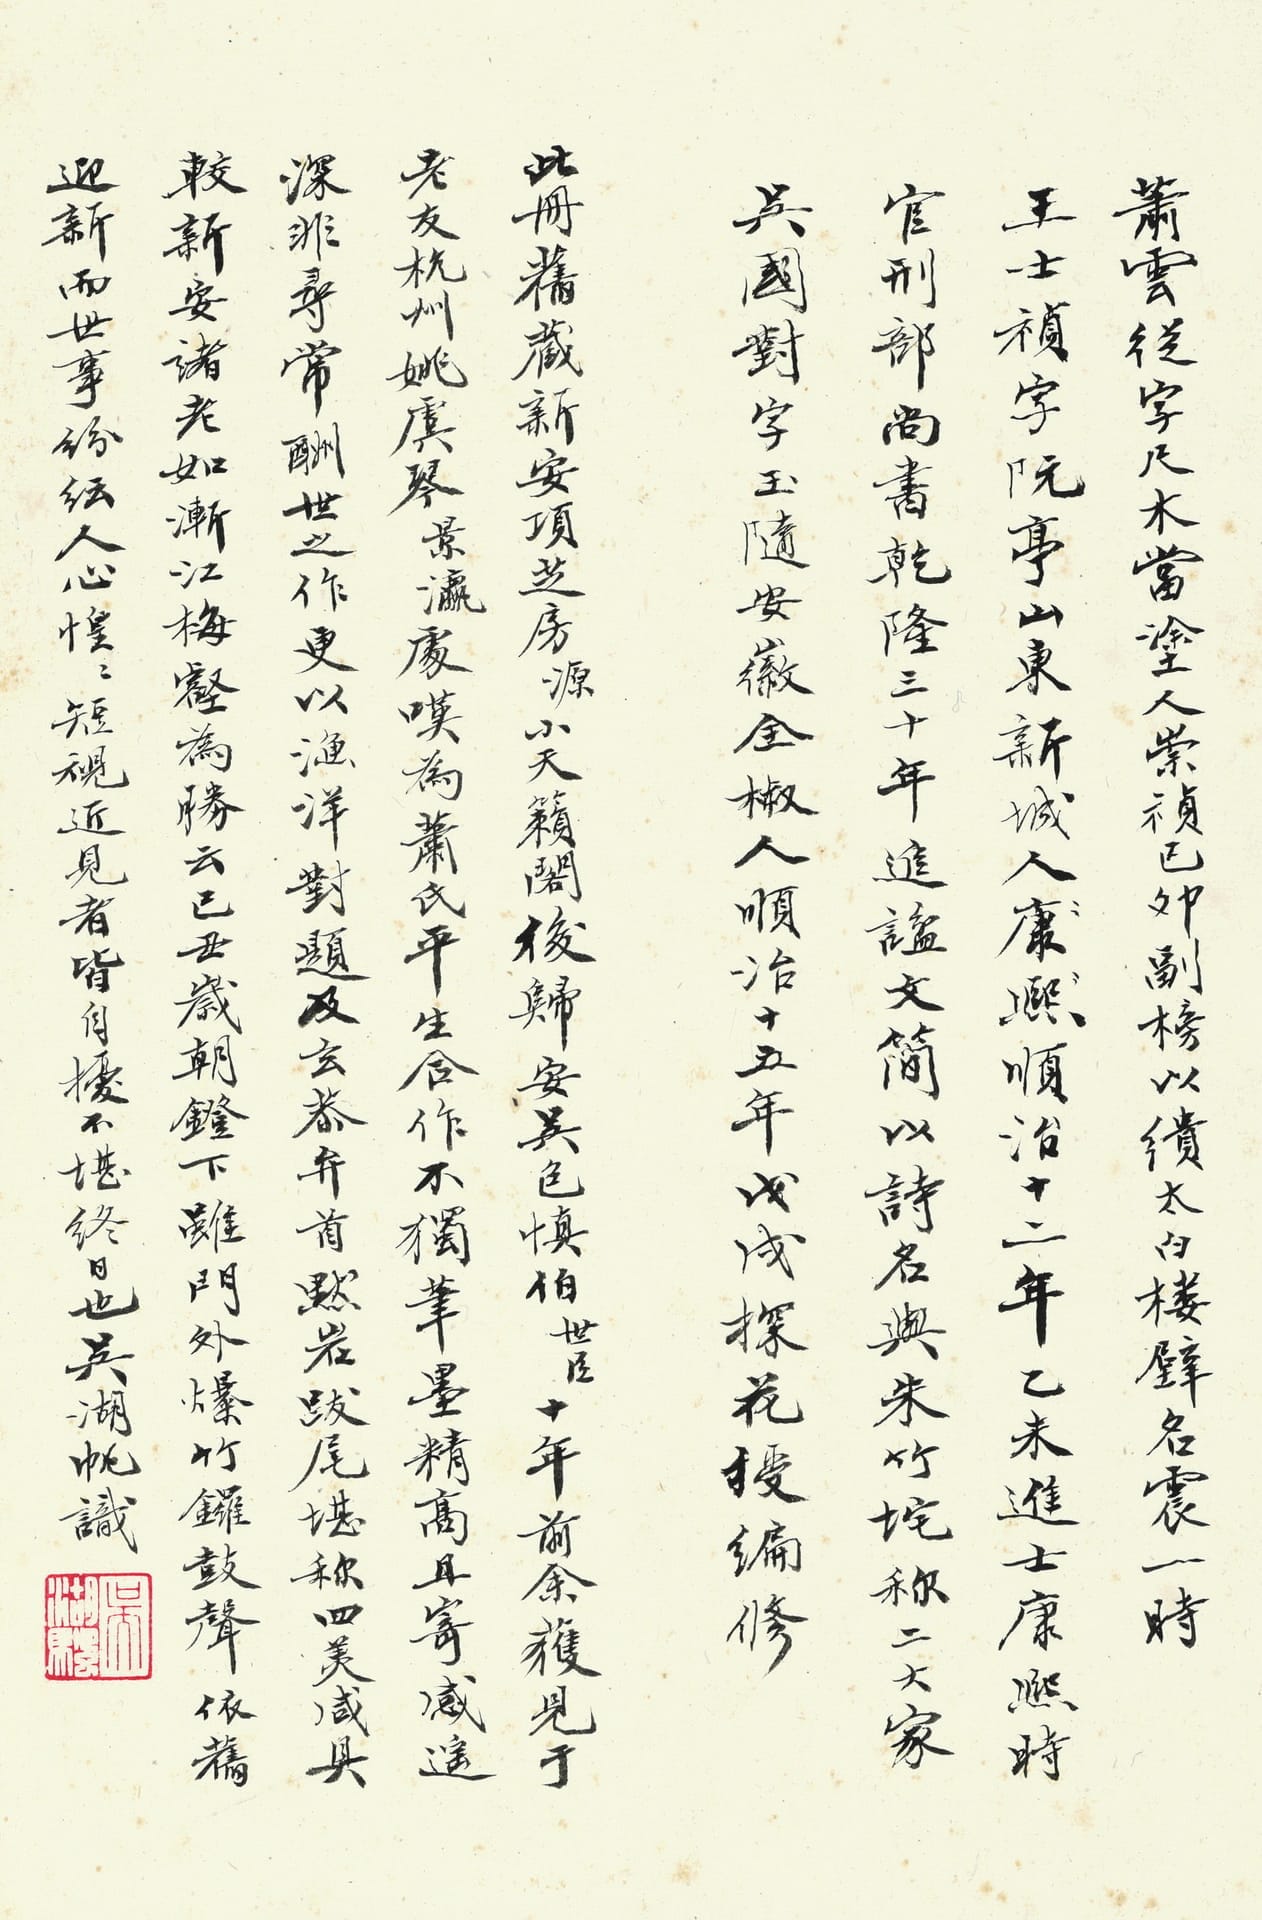 蕭雲從字尺木當塗人崇禎己卯副榜以繢太白楼壁名震一時
王士禎字阮亭山東新城人康熙順治十二年乙未進士康熙時
官刑部尚書乾隆三十年追謚文簡以詩名與朱竹垞称二大家
吳國對字玉隨安徽全椒人順治十五年戊戌探花授編修
此冊舊藏新安項芝房源小天籟閣後歸安吳包慎伯世臣十年前余獲見于
老友杭州姚虞琴景瀛處嘆為蕭氏平生合作不獨筆墨精高且寄感遥
深非尋常酬世之作更以漁洋對題及玄恭弁首默岩跋尾堪称四美咸具
較新安諸老如漸江梅壑為勝云己丑歲朝鐙下雖門外爆竹鑼鼓聲依舊
迎新而世事紛紜人心惶〻短視近見者皆自擾不堪終日也吳湖帆識
吳湖颿